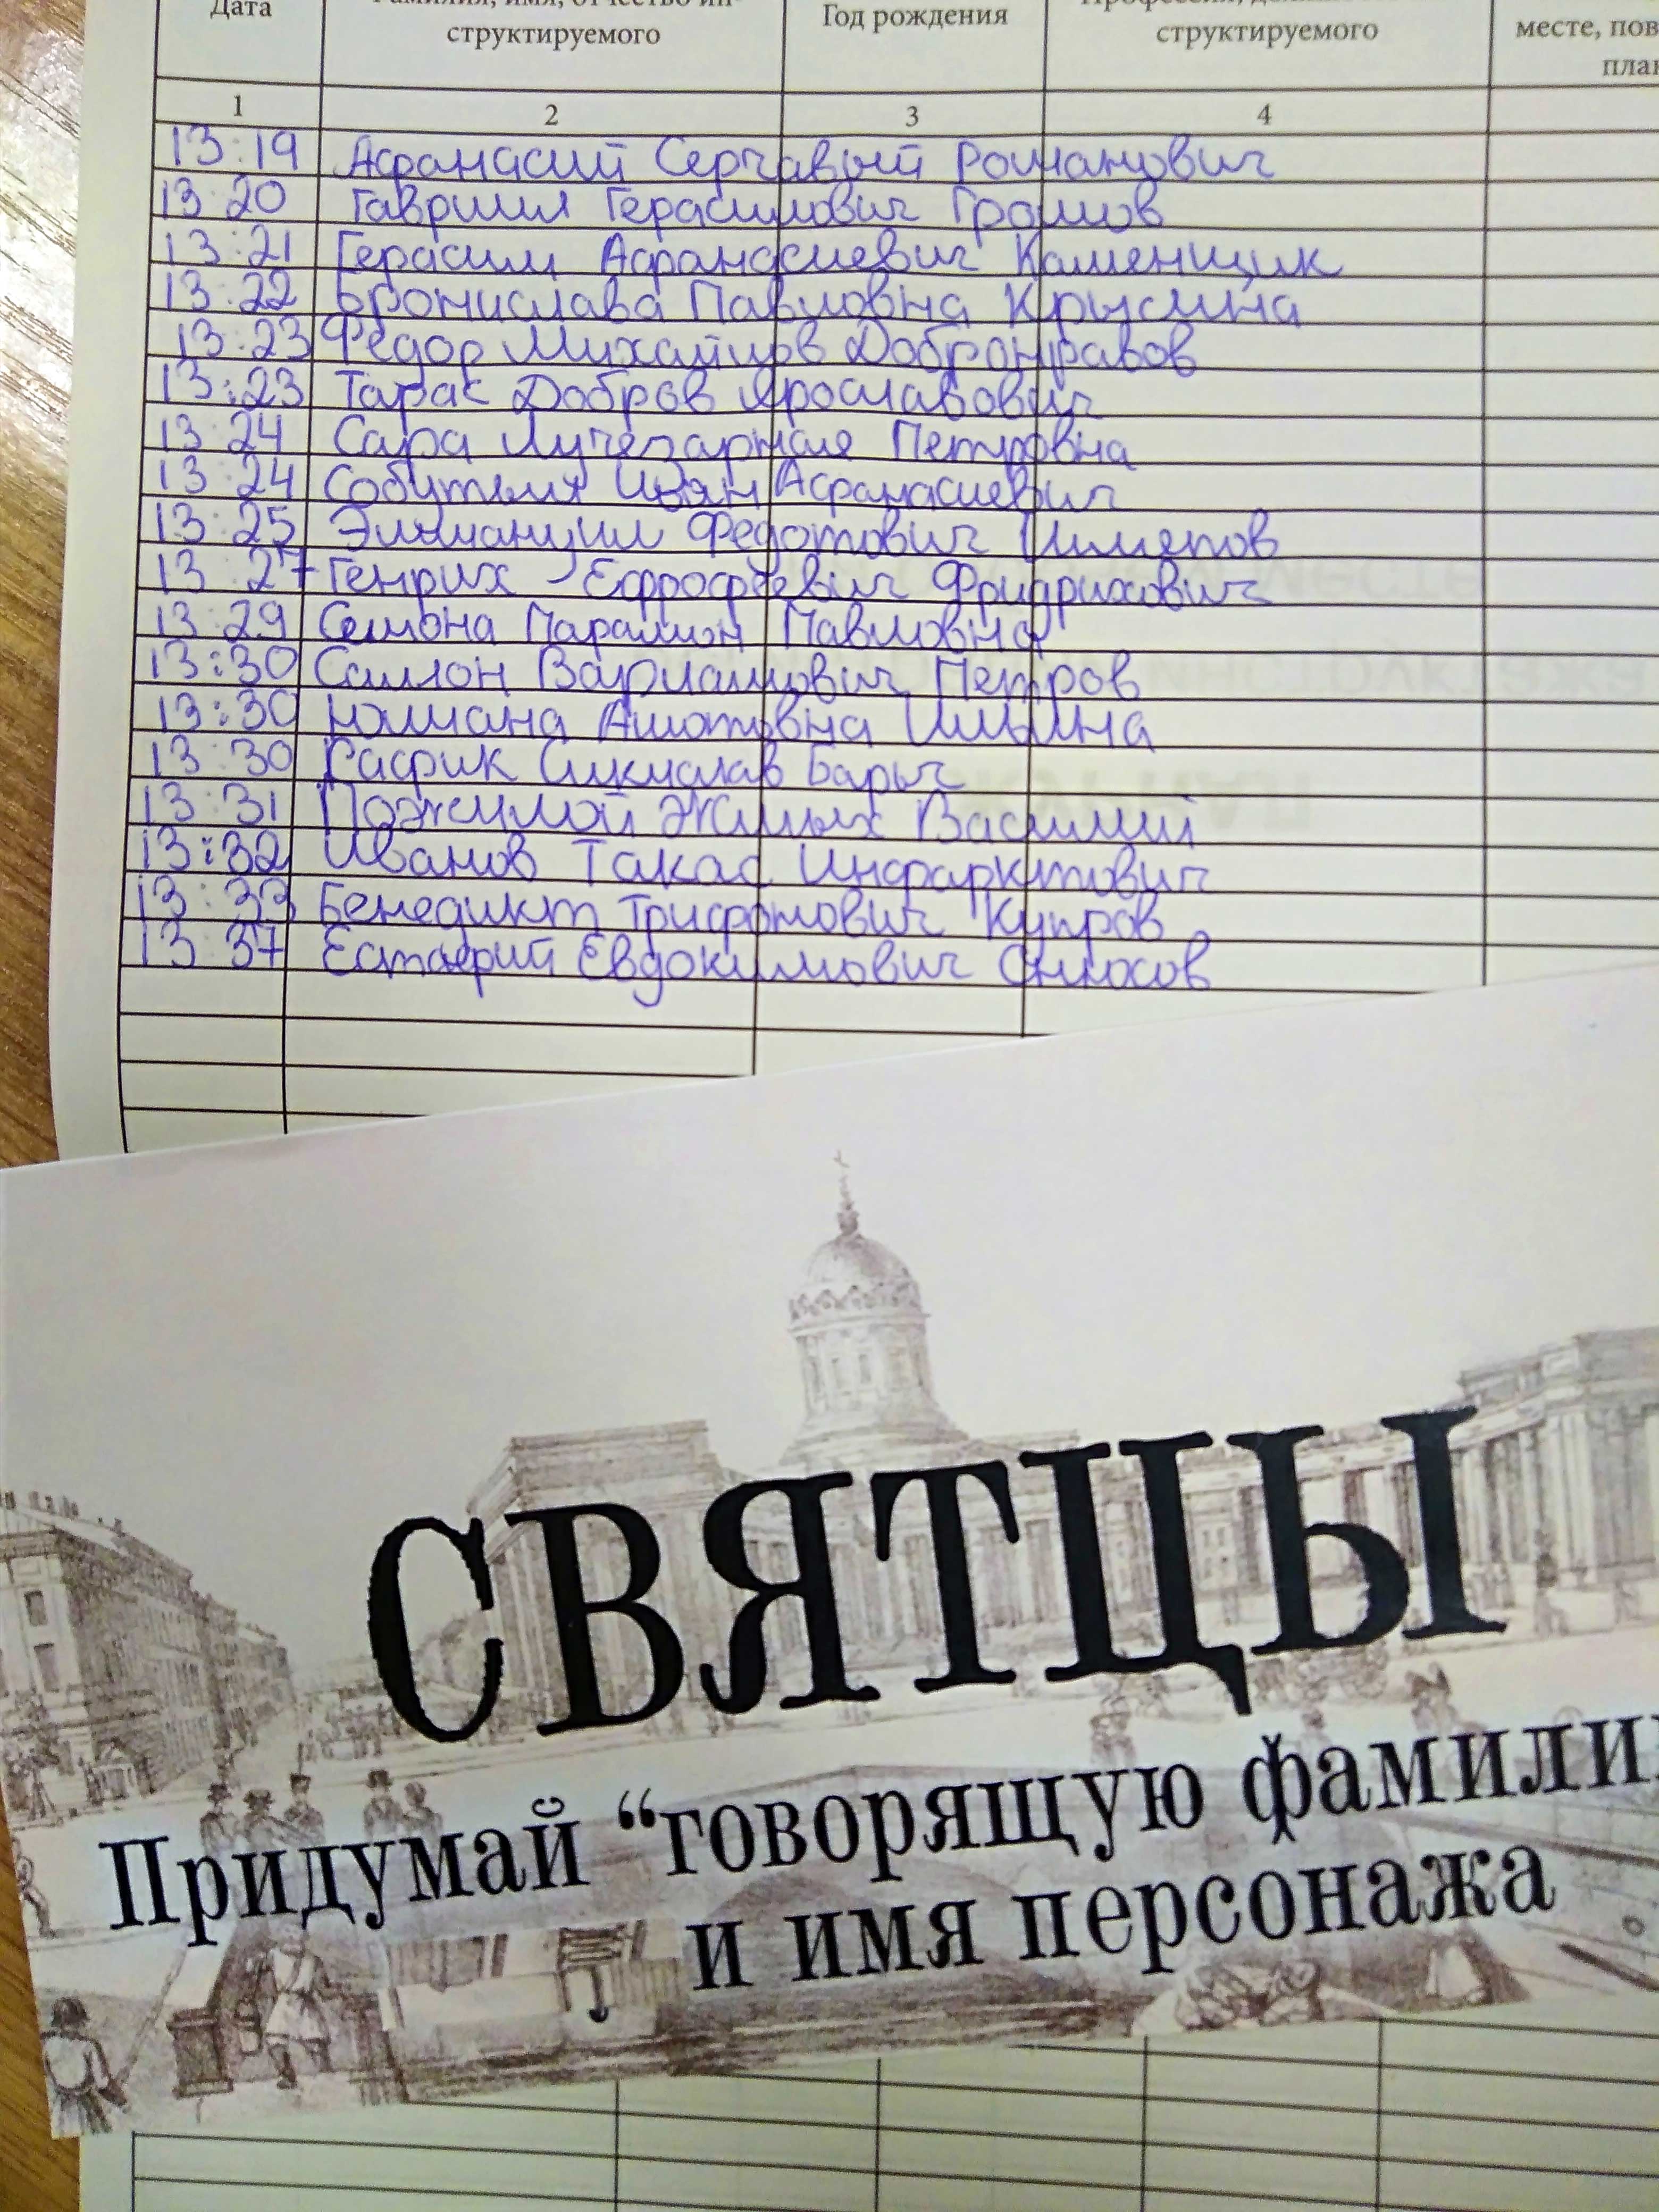 Дата
структируемого
Год рождения
структируемого
месте, пов
план
1 2 3 4
13:19 Афанасий Серчавый Романович
13:20 Гавриил Герасимович Громов
13:21 Герасим Афанасиевич Каменщик
13:22 Бронислава Павловна Крысина
13:23 Федор Михайлов Добронравов
13:23 Тарас Добров Ярославович
13:24 Сара Лучезарная Петровна
13:24 Собутыля Иван Афанасиевич
13:25 Эммануил Федотович Шляпов
13:27 Генрих Фридрихович
13:29 Павловна
13:30 Варламович Петров
13:30 Юлиана Ашотовна Ильина
13:30 Рафик Барыч
13:31 Пожилой Жилых Василий
13:32 Иванов Такас Инфарктович
13:33 Бенедикт Трифонович Купров
13:37 Евдокимович
СВЯТЦЫ
Придумай “говорящую фамили
и имя персонажа